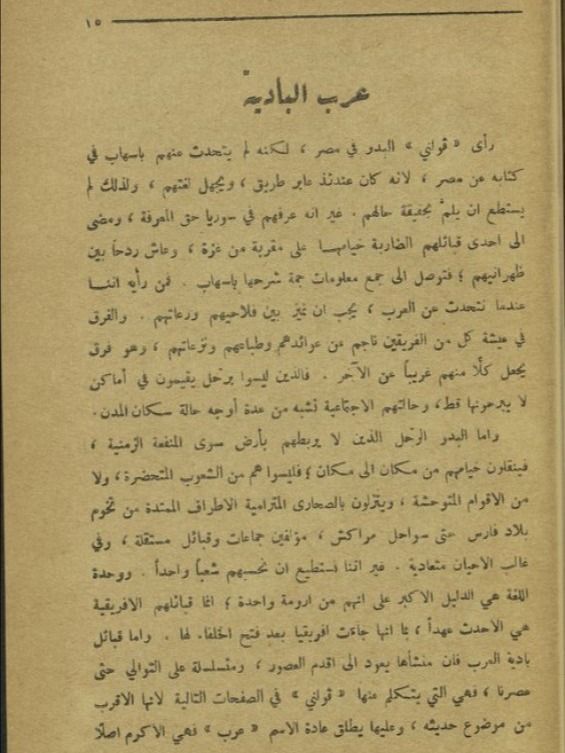 ١٥
عرب البادية
رأى « ڤولني » البدو في مصر ، لكنه لم يتحدث عنهم باسهاب في
كتابه عن مصر ، لانه كان عندئذ عابر طريق ، ويجهل لغتهم ، ولذلك لم
يستطع ان يلمَّ بحقيقة حالهم . غير انه عرفهم في سوريا حق المعرفة ، ومضى
الى احدى قبائلهم الضاربة خيامها على مقربة من غزة ، وعاش ردحاً بين
ظهرانيهم ؛ فتوصل الى جمع معلومات جمة شرحها باسهاب . فمن رأيه اننا
عندما نتحدث عن العرب ، يجب ان نميّز بين فلاحيهم ورعاتهم . والفرق
في عيشة كل من الفريقين ناجم عن عوائدهم وطباعهم ونزعاتهم ، وهو فرق
يجعل كلًّا منهم غريباً عن الآخر . فالذين ليسوا برحّل يقيمون في أماكن
لا يبرحونها قط ، وحالتهم الاجتماعية تشبه من عدة أوجه حالة سكان المدن .
واما البدو الرحّل الذين لا يربطهم بأرض سوى المنفعة الزمنية ،
فينقلون خيامهم من مكان الى مكان ؛ فليسوا هم من الشعوب المتحضرة ، ولا
من الاقوام المتوحشة ، وينزلون بالصحارى المترامية الاطراف الممتدة من تخوم
بلاد فارس حتى سواحل مراكش ، مؤلفين جماعات وقبائل مستقلة ، وفي
غالب الاحيان متعادية . غير اننا نستطيع ان نحسبهم شعباً واحداً . ووحدة
اللغة هي الدليل الاكبر على انهم من ارومة واحدة ؛ انما قبائلهم الافريقية
هي الاحدث عهداً ، بما انها جاءت افريقيا بعد فتح الخلفاء لها . واما قبائل
بادية العرب فان منشأها يعود الى اقدم العصور ، ومتسلسلة على التوالي حتى
عصرنا ، فهي التي يتكلم عنها « ڤولني » في الصفحات التالية لانها الاقرب
من موضوع حديثه ، وعليها يطلق عادة الاسم « عرب » فهي الاكرم اصلًا